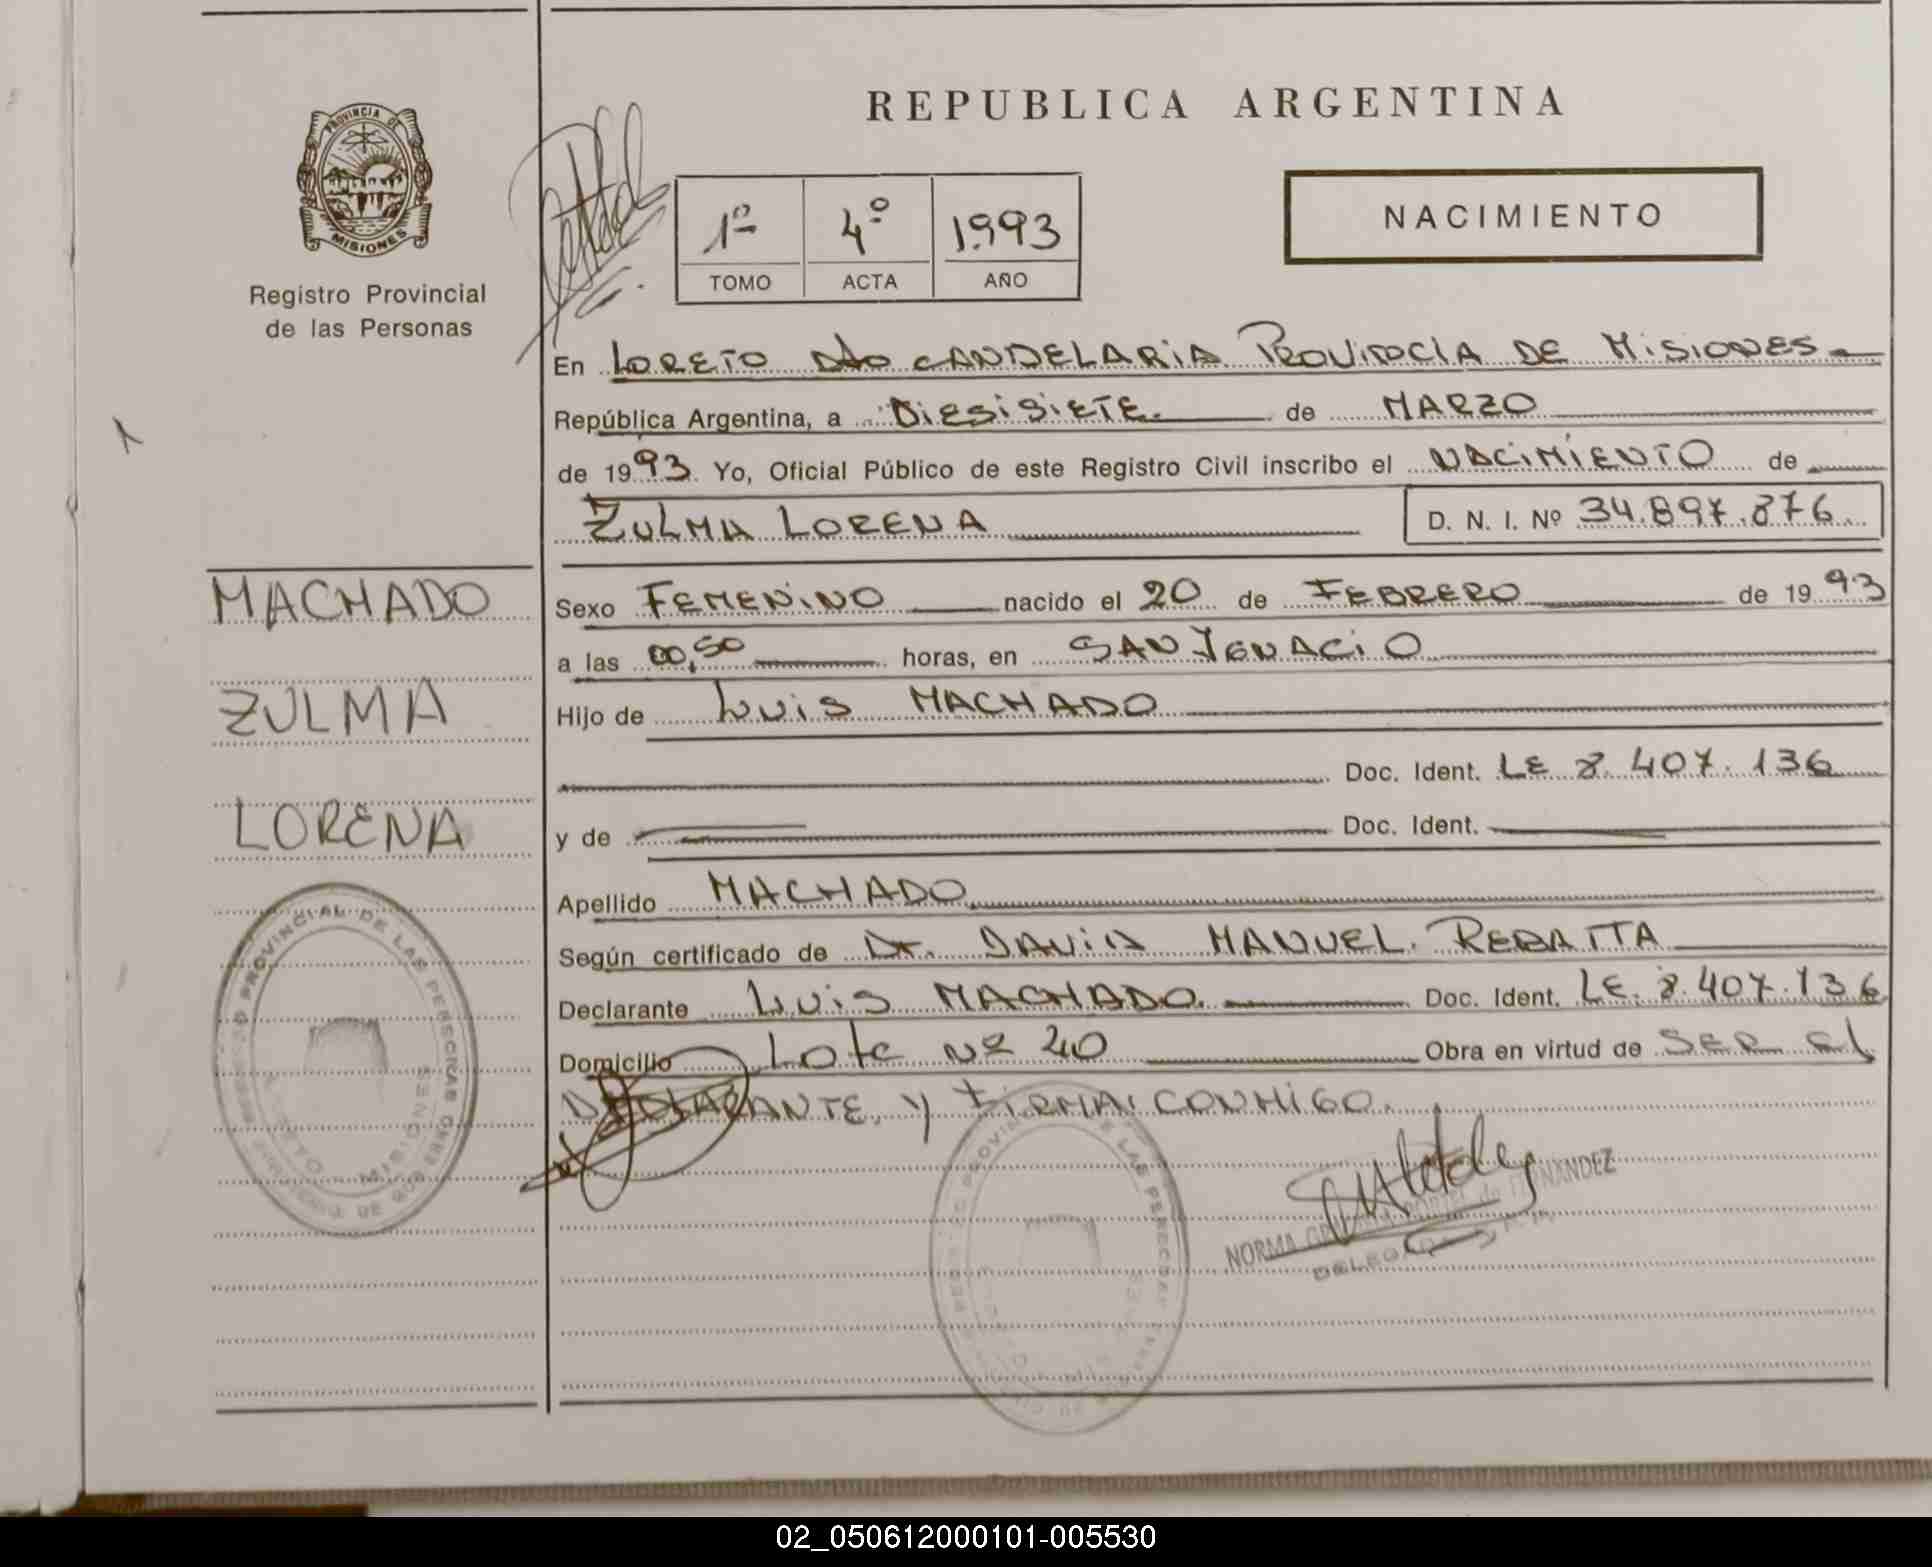 REPUBLICA ARGENTINA
PROVINCIA DE
MISIONES
Registro Provincial
de las Personas
1º 4º 1993
TOMO ACTA AÑO
NACIMIENTO
En LORETO Dto CANDELARIA PROVINCIA DE MISIONES
República Argentina, a DIESISIETE de MARZO
de 1993 Yo, Oficial Público de este Registro Civil inscribo el NACIMIENTO de
ZULMA LORENA D. N. I. Nº 34.897.876
MACHADO
ZULMA
LORENA
Sexo FEMENINO nacido el 20 de FEBRERO de 1993
a las 00,50 horas, en SAN IGNACIO
Hijo de LUIS MACHADO
Doc. Ident. LE 8.407.136
y de Doc. Ident.
Apellido MACHADO
Según certificado de Dr. DAVID MANUEL REBATTA
Declarante LUIS MACHADO. Doc. Ident. LE. 8.407.136
Domicilio Lote Nº 20 Obra en virtud de SER el
DECLARANTE, Y FIRMA CONMIGO.
PROVINCIAL DE LAS PERSONAS
LORETO MISIONES
NORMA de FERNANDEZ
DELEGADA
02_050612000101-005530